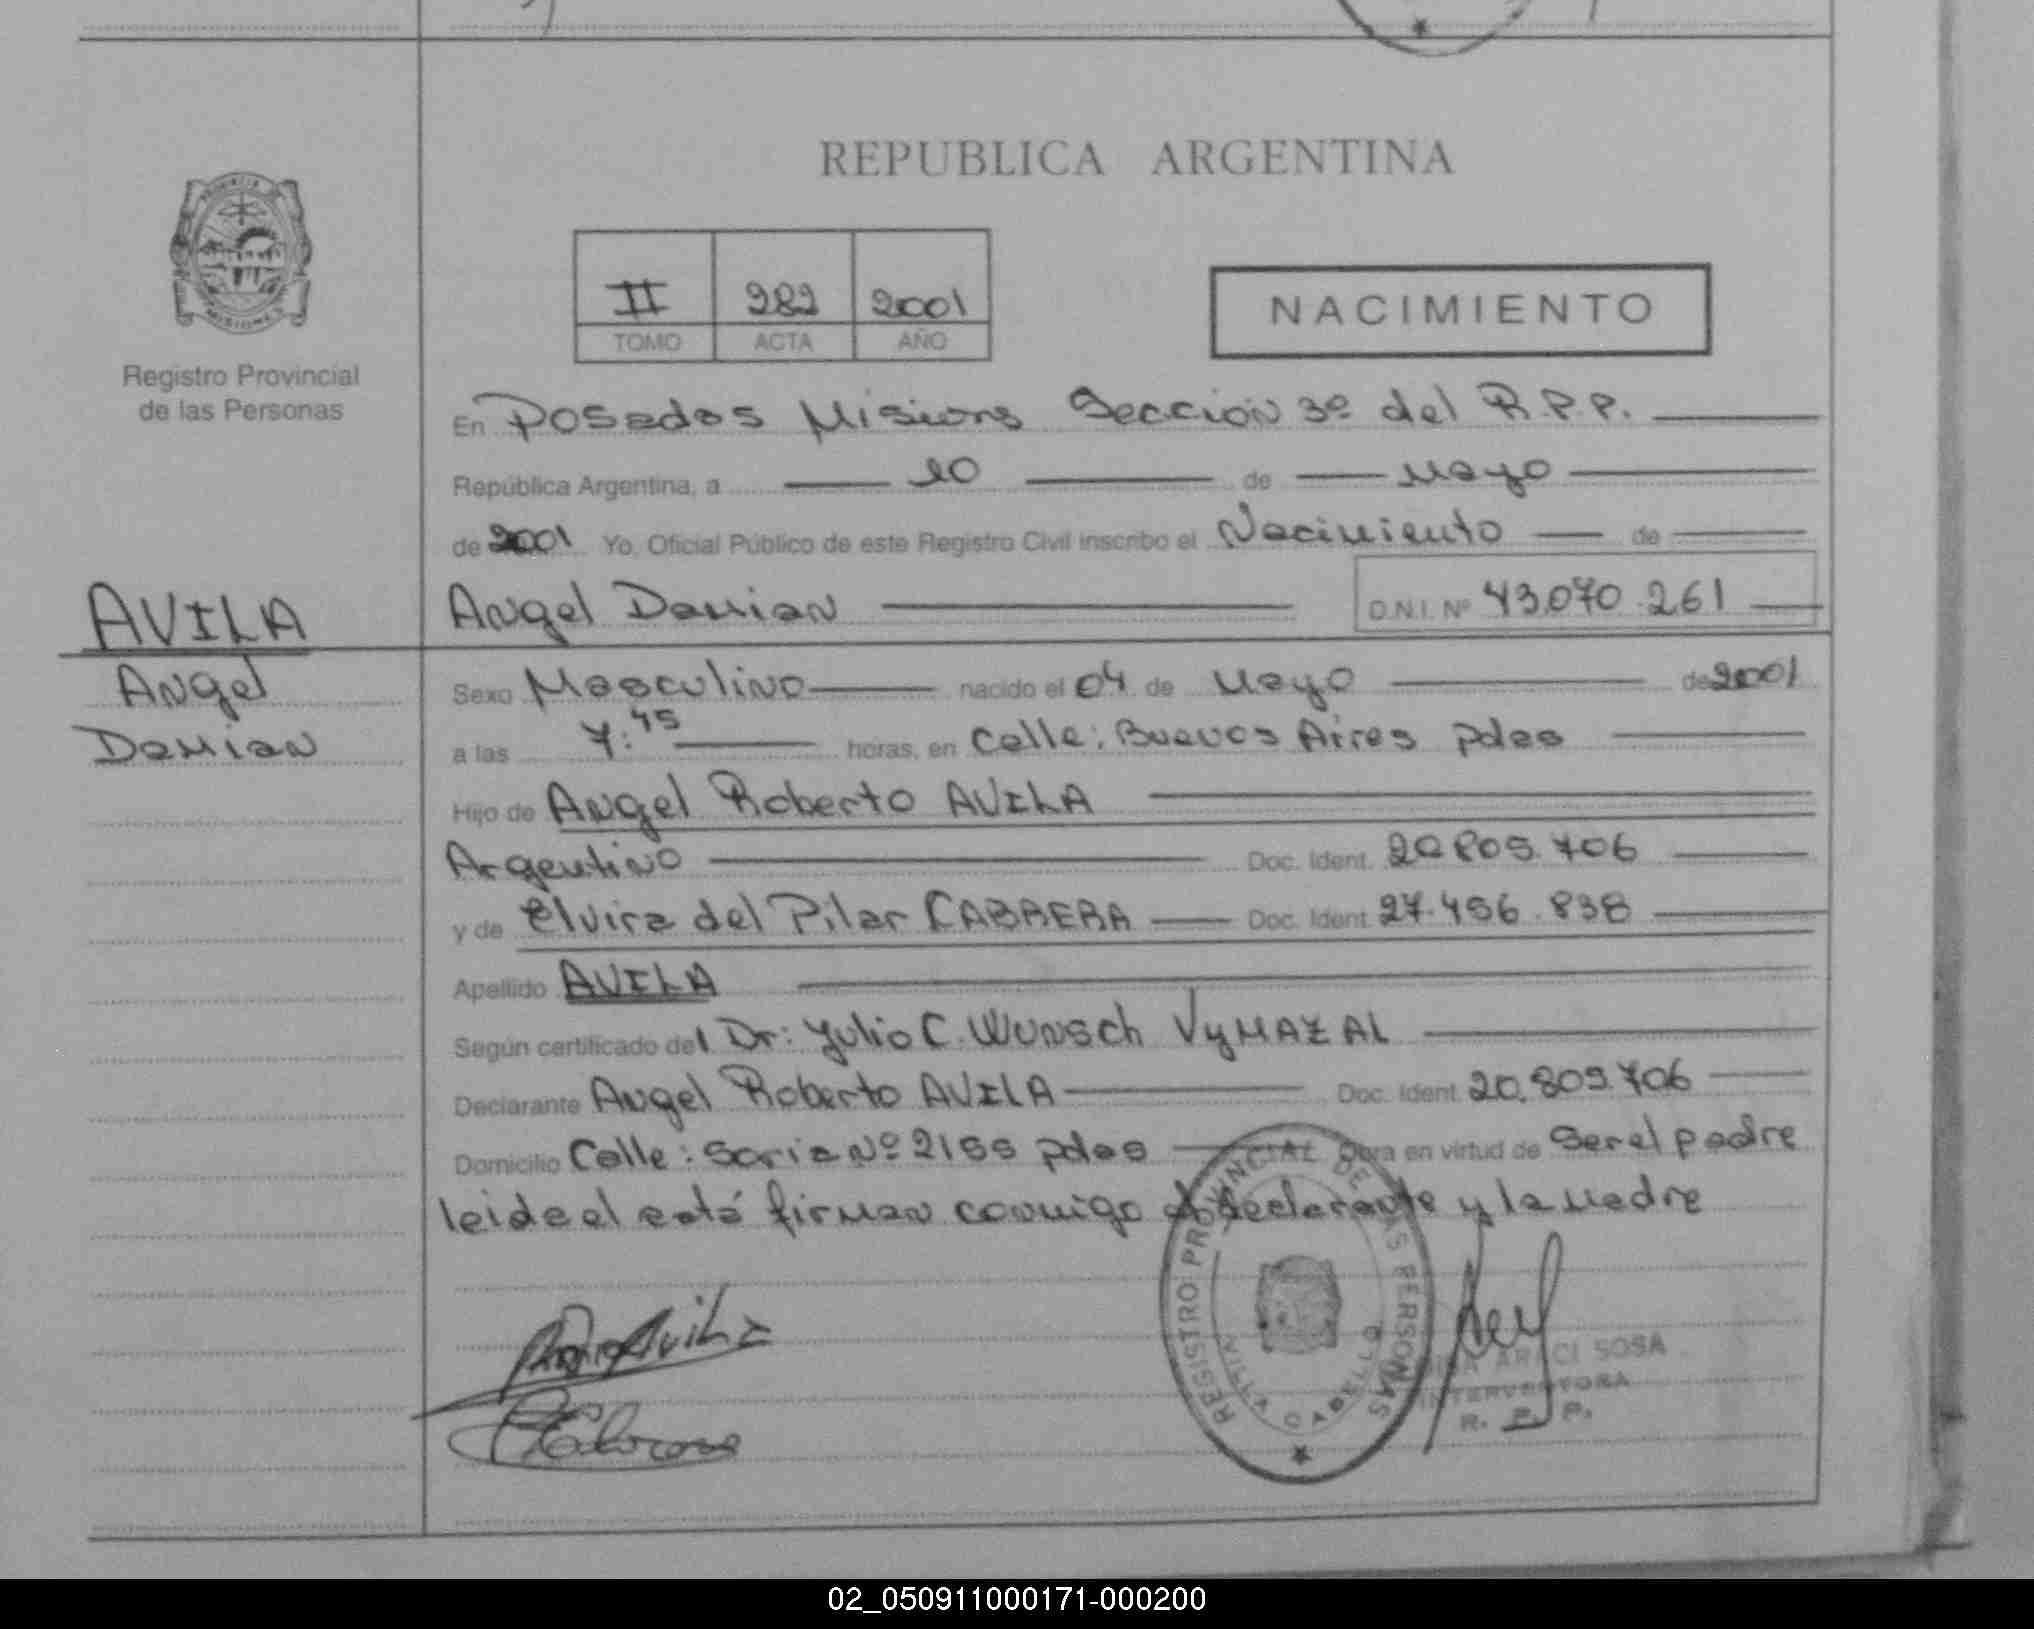 REPUBLICA ARGENTINA
II 282 2001
TOMO ACTA AÑO
NACIMIENTO
MISIONES
Registro Provincial
de las Personas
En Posadas Misiones Sección 3º del R.P.P.
República Argentina, a 10 de Mayo
de 2001 Yo, Oficial Público de este Registro Civil inscribo el Nacimiento de
AVILA
Angel
Damian
Angel Damian D.N.I. Nº 43.070.261
Sexo Masculino nacido el 04 de Mayo de 2001
a las 7:45 horas, en Calle: Buenos Aires pdas
Hijo de Angel Roberto AVILA
Argentino Doc. Ident. 20.809.706
y de Elvira del Pilar CABRERA Doc. Ident. 27.456.838
Apellido AVILA
Según certificado del Dr: Julio C. Wunsch VyMAZAL
Declarante Angel Roberto AVILA Doc. Ident. 20.809.706
Domicilio Calle: Soria Nº 2155 pdas Obra en virtud de ser el padre
leida el acta firman conmigo el declarante y la madre
REGISTRO PROVINCIAL DE LAS PERSONAS
VILLA CABELLO
ARACI SOSA
INTERVENTORA
R. P. P.
02_050911000171-000200